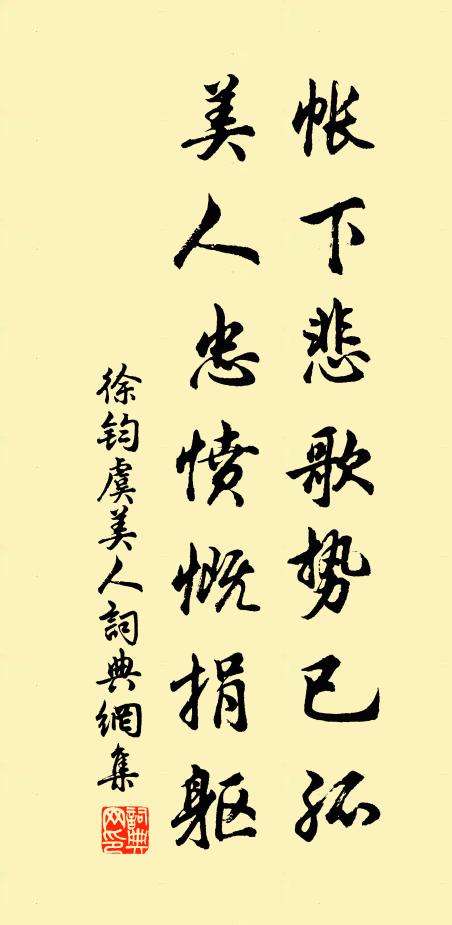 帐下悲歌势已孤
美人忠愤慨捐躯
徐钧虞美人詞典網集
詞典
网印